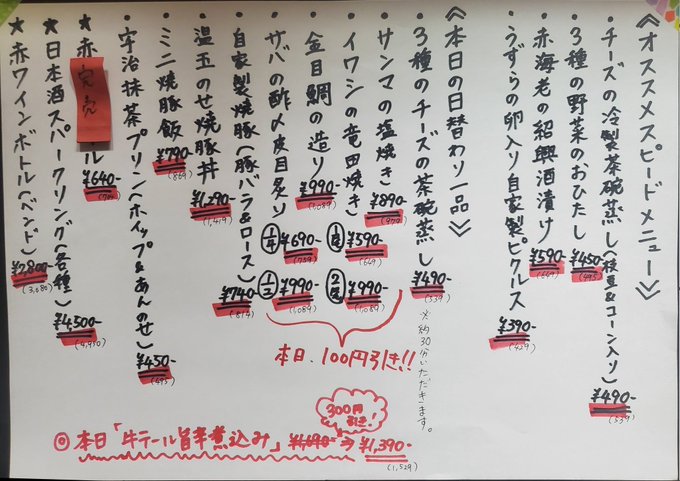 《オススメスピードメニュー》
・チーズの冷製茶碗蒸し(枝豆&コーン入り) ¥490- (539)
・3種の野菜のおひたし ¥450- (495)
・赤海老の紹興酒漬け ¥590- (649)
・うずらの卵入り自家製ピクルス ¥390- (429)
《本日の日替わり一品》
・3種のチーズの茶碗蒸し ¥490- (539) ※約30分いただきます。
・サンマの塩焼き ¥890- (979)
・イワシの竜田焼き 1本 ¥590- (649) 2本 ¥990- (1,089)
・金目鯛の造り ¥990- (1,089)
・サバの酢〆皮目炙り 1/4 ¥690- (759) 1/2 ¥990- (1,089)
本日、100円引き!!
・自家製焼豚(豚バラ&ロース) ¥740- (814)
・温玉のせ焼豚丼 ¥1,290- (1,419)
・ミニ焼豚飯 ¥790- (869)
・宇治抹茶プリン(ホイップ&あんのせ) ¥450- (495)
★赤 完売 ル ¥640-
★日本酒スパークリング(各種) ¥4,500- (4,950)
★赤ワインボトル(ベンド) ¥2,800- (3,080)
◎本日「牛テール旨辛煮込み」 ¥1,690- → ¥1,390- (1,529)
300円引き!